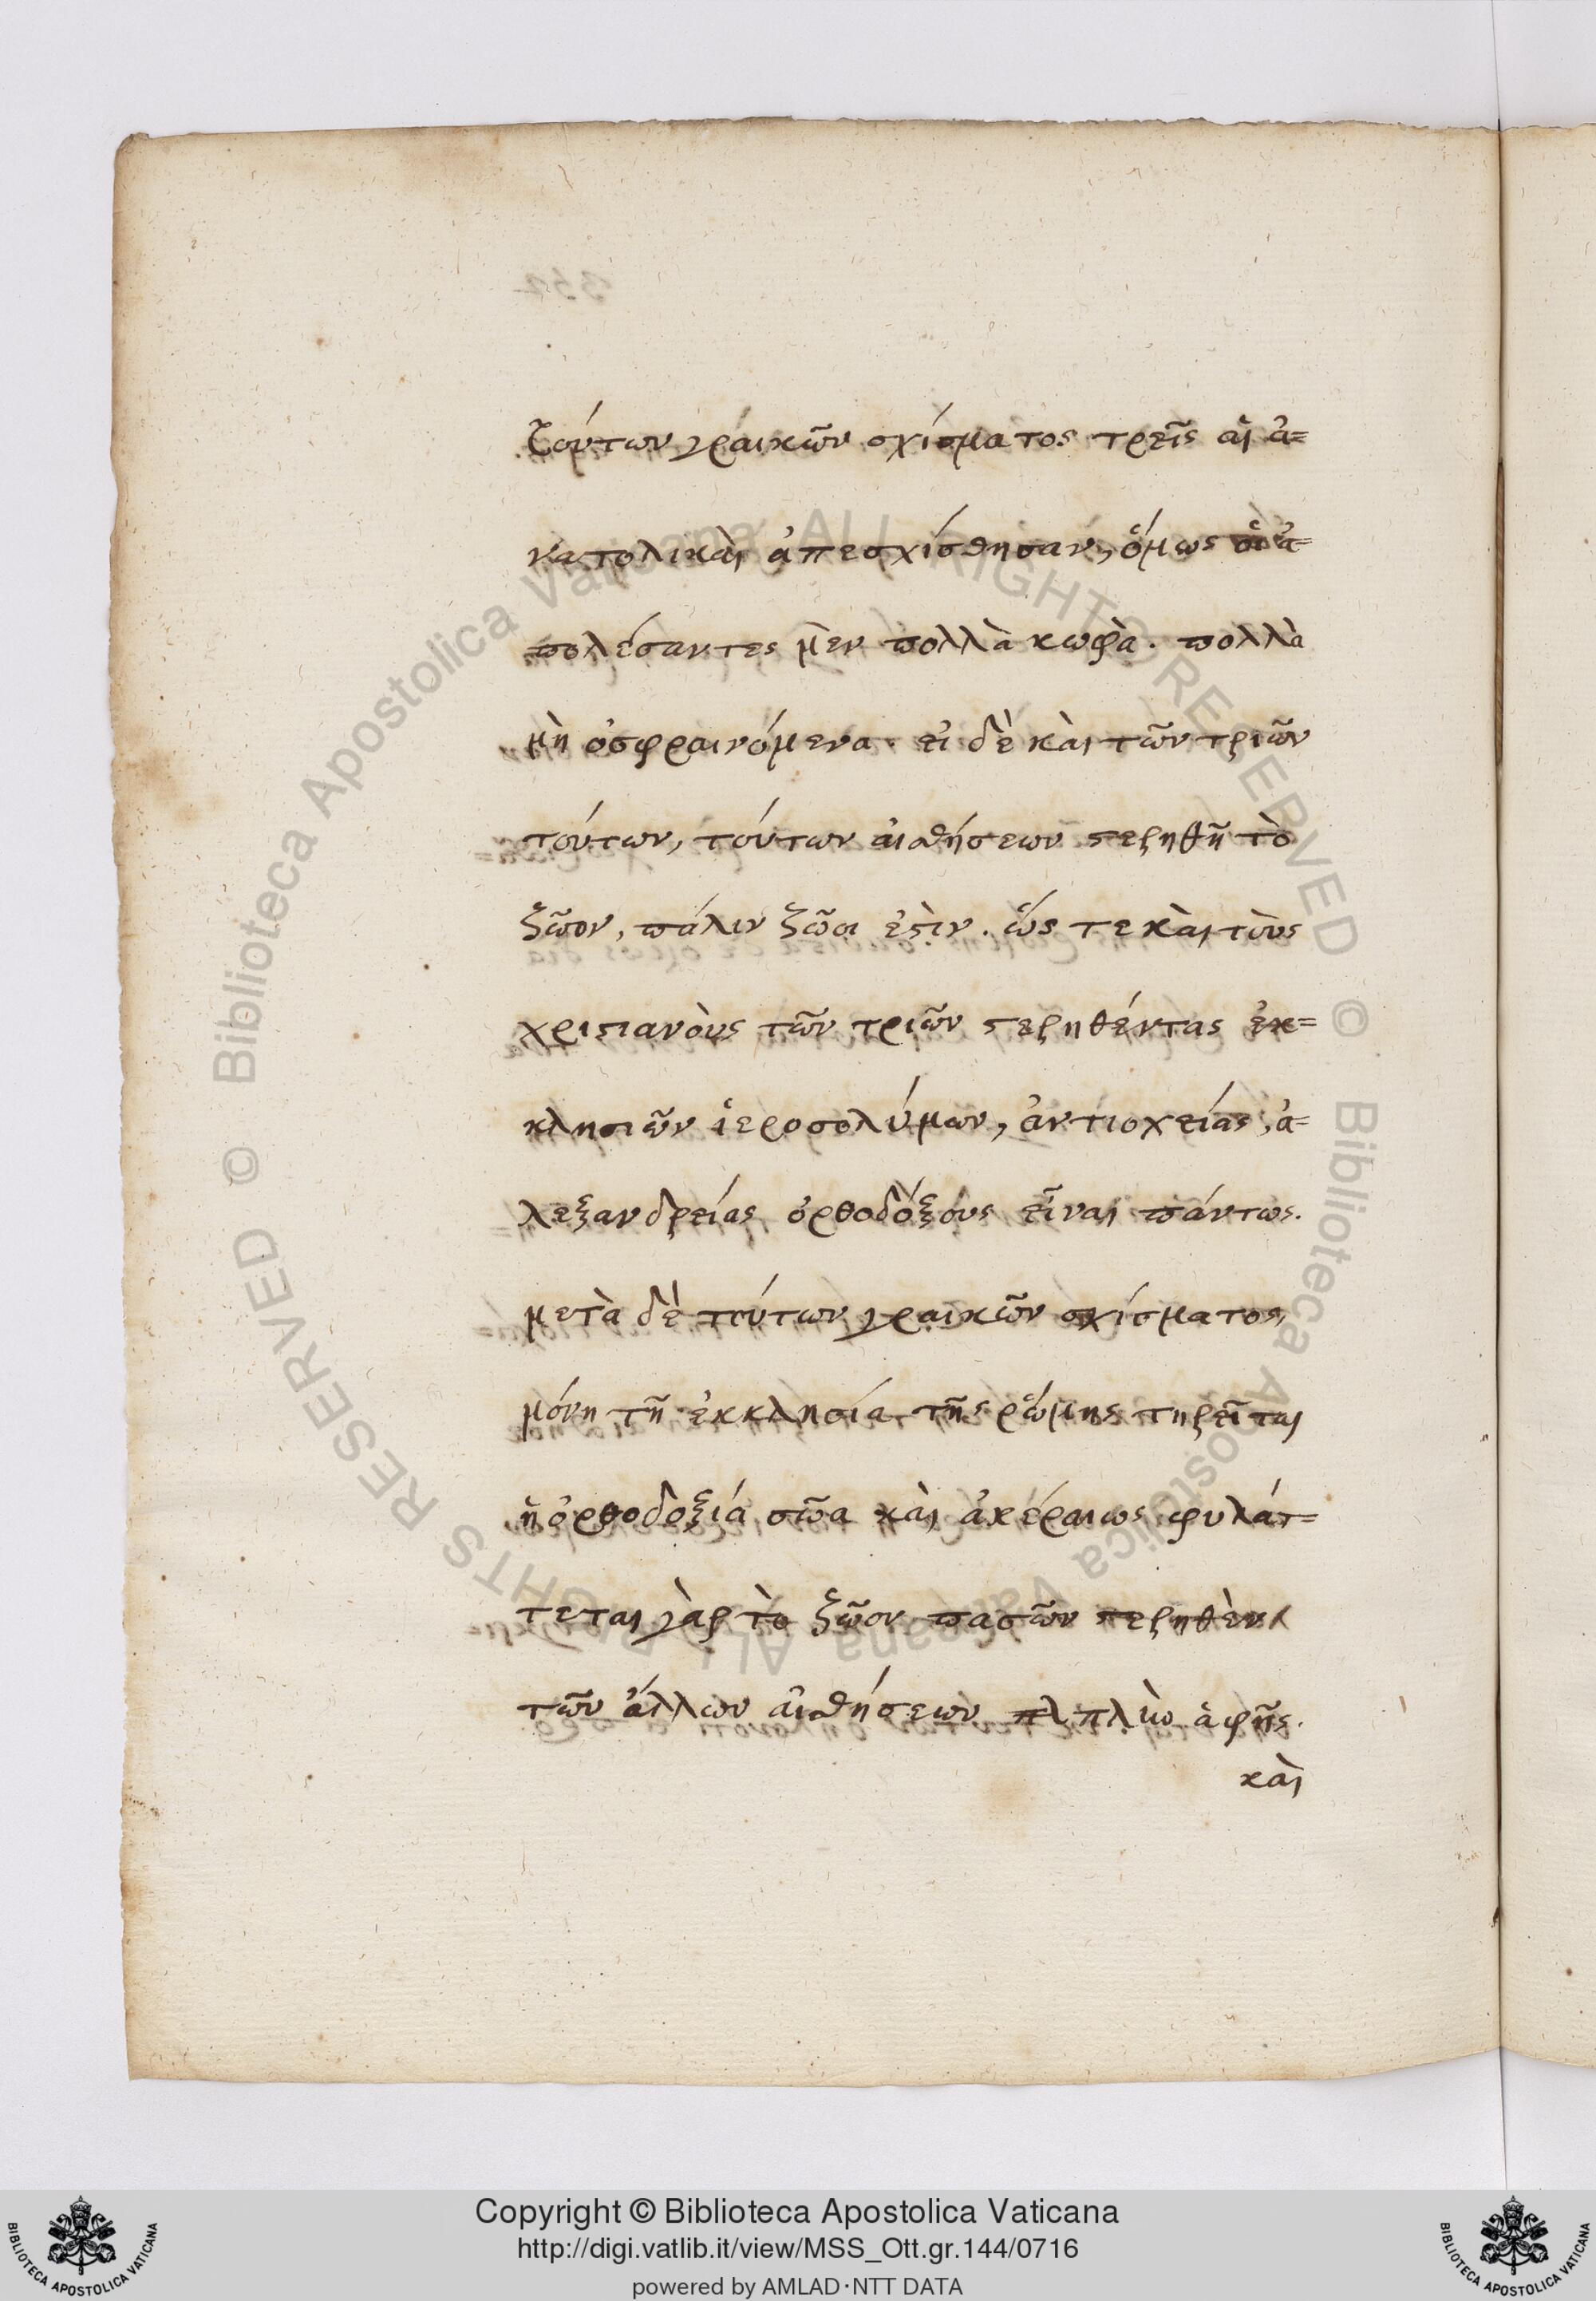 ζούτων γραικῶν σχίσματος τρεῖς αἱ ἀ=
νατολικαὶ ἀπεσχίσθησαν, ὅμως οἱ ἀ=
πολέσαντες μὲν πολλὰ κωφὰ. πολλὰ
μὴ ὀσφραινόμενα. εἰ δὲ καὶ τῶν τριῶν
τούτων, τούτων αἰσθήσεων στερηθῆ τὸ
ζῶον, πάλιν ζῶοι ἐστὶν. ὥς τε καὶ τοὺς
χριστιανοὺς τῶν τριῶν στερηθέντας ἐκ=
κλησιῶν ἱεροσολύμων, ἀντιοχείας, ἀ=
λεξανδρείας ὀρθοδόξους εἶναι πάντως.
μετὰ δὲ τούτων γραικῶν σχίσματος,
μόνη τῆ ἐκκλησία τῆς ῥώμης τηρεῖται
ἡ ὀρθοδοξιά σῶα καὶ ἀκέραιως φυλάτ=
τεται γὰρ τὸ ζῶον πασῶν στερηθὲν
τῶν ἄλλων αἰσθήσεων πλὴν ἁφῆς.
καὶ
Copyright © Biblioteca Apostolica Vaticana
http://digi.vatlib.it/view/MSS_Ott.gr.144/0716
powered by AMLAD·NTT DATA